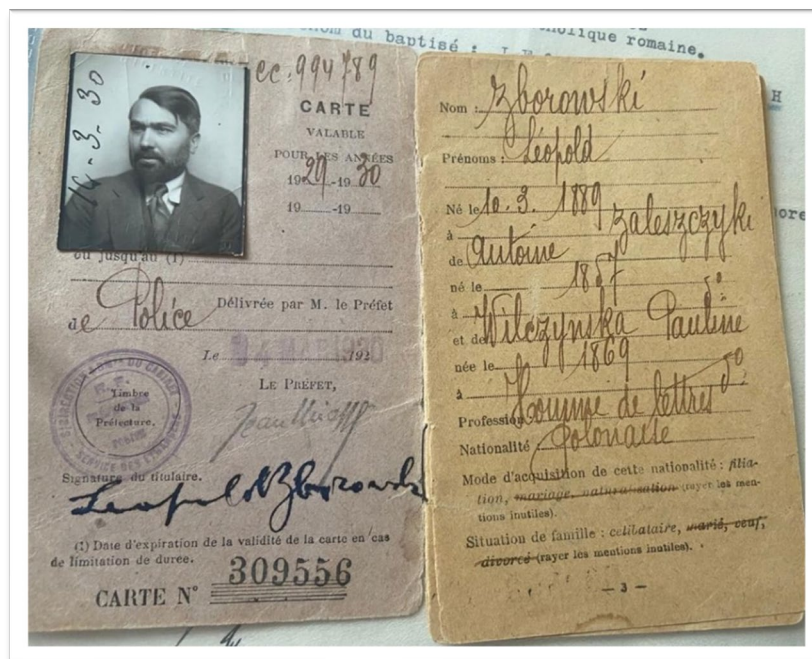 nom du baptisé :
catholique romaine.
H
ec. 994789
CARTE
VALABLE
POUR LES ANNÉES
1929-1930
19 -19
14-3-30
ou jusqu'au (1)
de Police Délivrée par M. le Préfet
Le 14 MAR 1930 192
LE PRÉFET,
Timbre
de la
Préfecture.
SERVICE DES ETRANGERS
Signature du titulaire.
Leopold Zborowski
(1) Date d'expiration de la validité de la carte en cas
de limitation de durée.
CARTE N° 309556
Nom : Zborowski
Prénoms : Léopold
Né le 10. 3. 1889
à Zaleszczyki
de Antoine
né le 1857
à do
et de Wilczynska Pauline
née le 1869
à do
Profession Homme de lettres
Nationalité Polonaise
Mode d'acquisition de cette nationalité : filia-
tion, mariage, naturalisation (rayer les men-
tions inutiles).
Situation de famille : célibataire, marié, veuf,
divorcé (rayer les mentions inutiles).
— 3 —